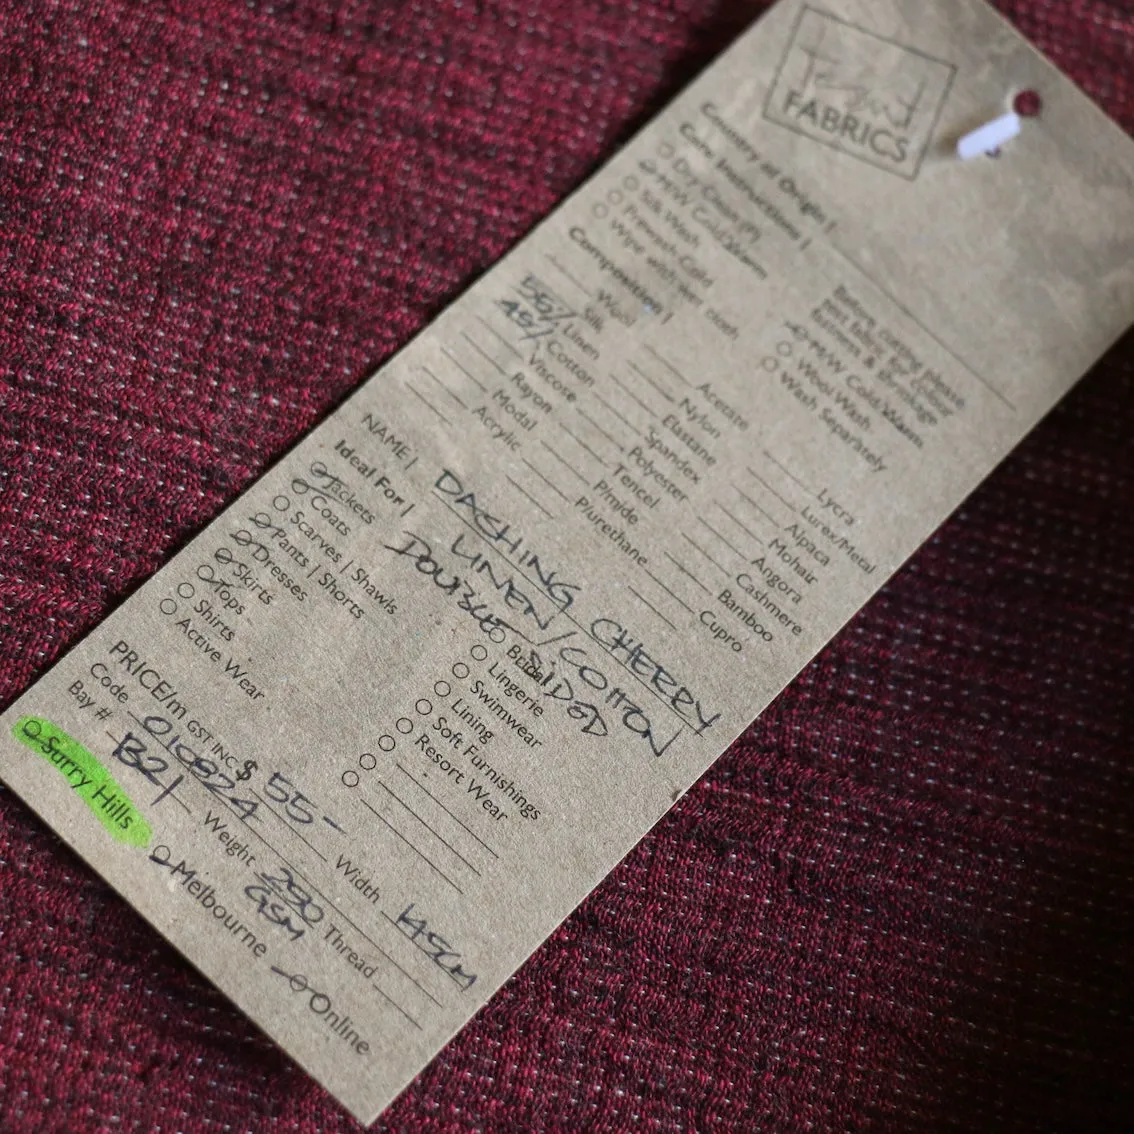 FABRICS
Country of Origin |
Care Instructions |
Dry Clean (P)
M/W Cold/Warm
Silk Wash
Prewash Cold
Wipe with wet cloth
Before cutting please
test fabric for Colour
fastness & Shrinkage
M/W Cold/Warm
Wool Wash
Wash Separately
Composition |
Wool
Silk
55/ Linen
45/ Cotton
Viscose
Rayon
Modal
Acrylic
Acetate
Nylon
Elastane
Spandex
Polyester
Tencel
P/mide
P/urethane
Lycra
Lurex/Metal
Alpaca
Mohair
Angora
Cashmere
Bamboo
Cupro
NAME | DASHING CHERRY
LINEN/COTTON
DOUBLE SIDED
Ideal For |
Jackets
Coats
Scarves | Shawls
Pants | Shorts
Dresses
Skirts
Tops
Shirts
Active Wear
Bridal
Lingerie
Swimwear
Lining
Soft Furnishings
Resort Wear
PRICE/m GST INC $ 55-
Code 010824 Width 145CM
Bay # B21 Weight 290 GSM Thread
Surry Hills Melbourne Online